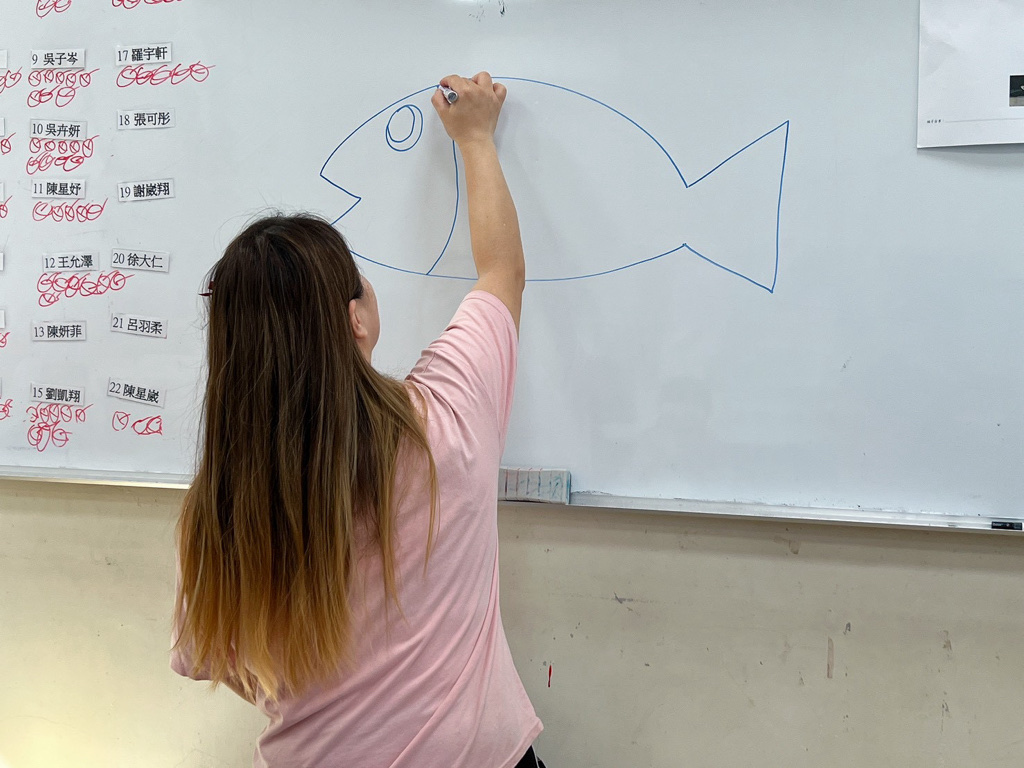 9 吳子岑
10 吳卉妍
11 陳星妤
12 王允澤
13 陳妍菲
15 劉凱翔
17 羅宇軒
18 張可彤
19 謝崴翔
20 徐大仁
21 呂羽柔
22 陳星崴